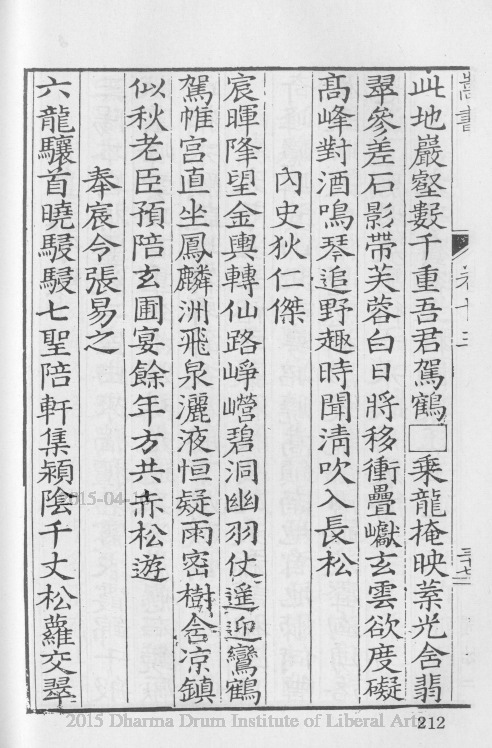 嵩書
卷十三
三十二
此地巖壑數千重吾君駕鶴□乗龍掩映葉光含翡
翠參差石影帶芙蓉白日將移衝疊巘玄雲欲度礙
髙峰對酒鳴琴追野趣時聞清吹入長松
內史狄仁傑
宸暉降望金輿轉仙路崢嶸碧洞幽羽仗遥迎鸞鶴
駕帷宮直坐鳳麟洲飛泉灑液恒疑雨密樹含凉鎮
似秋老臣預陪玄圃宴餘年方共赤松遊
奉宸令張易之
六龍驤首曉駸駸七聖陪軒集潁陰千丈松蘿交翠
2015-04-
2015 Dharma Drum Institute of Liberal Arts
212